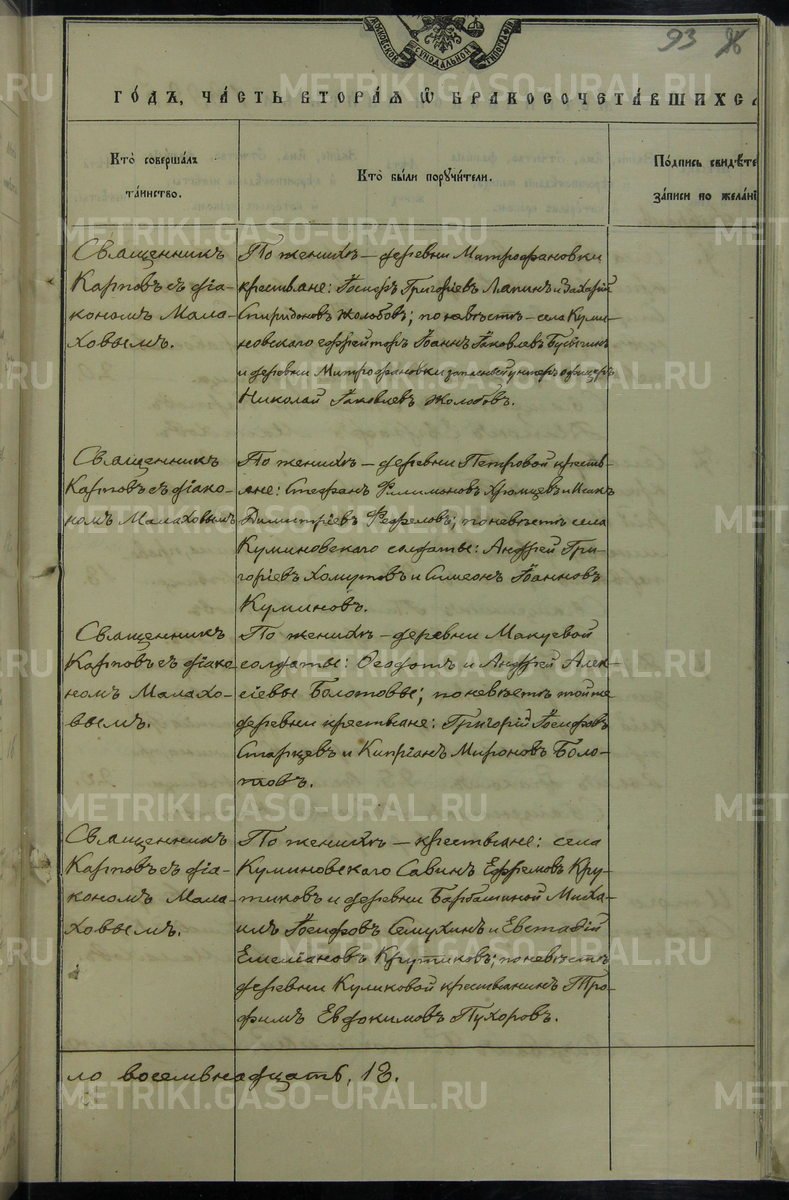 МОСКОВСКОЙ СѴНОДАЛЬНОЙ ТИПОГРАФІИ
93
ГО́ДЪ, ЧА́СТЬ ВТОРА́Я, Ѽ БРАКОСОЧЕТА́ВШИХСЯ
Кто̀ соверша́лъ
та́инство.
Кто̀ бы́ли поручи́тели.
По́дпись свидѣ́те
за́писи по жела́нї
Священникъ
Карповъ съ діа-
кономъ Мала-
ховымъ.
По женихѣ – деревни Митрофановки
крестьяне: Іосифъ Григоріевъ Лапинъ и Захарій
Спиридоновъ Жолобовъ; по невѣстѣ – села Куми-
новскаго ефрейторъ Іоаннъ Іаковлевъ
и деревни Митрофановки запасный унтеръ офицеръ
Николай Іаковлевъ Жолобовъ.
Священникъ
Карповъ съ діако-
номъ Малаховымъ
По женихѣ – деревни Петровой кресть-
яне: Стефанъ Филимоновъ Храмцевъ и Исаакъ
Димитріевъ Фефеловъ; по невѣстѣ села
Куминовскаго солдаты: Андрей Гри-
горіевъ Хомутовъ и Симеонъ Іоанновъ
Куминовъ.
Священникъ
Карповъ съ діако
номъ Малахо-
вымъ.
По женихѣ – деревни Макуевой
солдаты: Ѳеодотъ и Андрей Алек-
сіевы Болотовы; по невѣстѣ той же
деревни крестьяне: Григорій Іосифовъ
Старцевъ и Кипріанъ Мироновъ Боло-
товъ.
Священникъ
Карповъ съ діа-
кономъ Мала-
ховымъ.
По женихѣ – крестьяне: села
Куминовскаго Савинъ Ефремовъ Кру-
тиковъ и деревни Барбашиной Миха-
илъ Іосифовъ Семухинъ и Евстафій
Емеліановъ Крутиковъ; по невѣстѣ
деревни Куликовой крестьянинъ Тро-
фимъ Евдокимовъ Пухоровъ.
ло восемьнадцать, 18.
METRIKI.GASO-URAL.RU